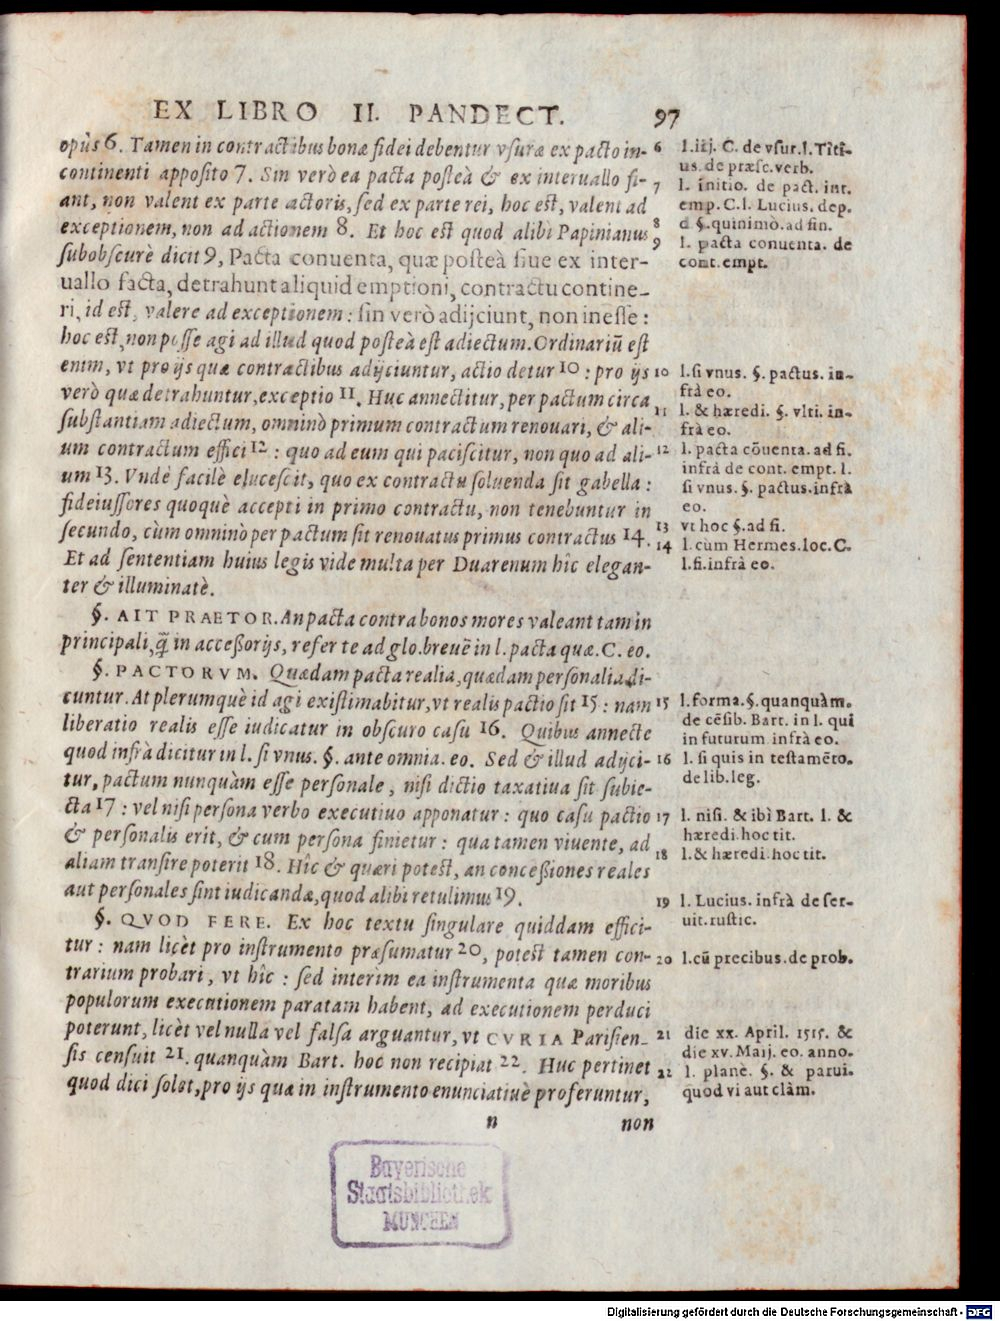 EX LIBRO II. PANDECT. 97
opùs 6. Tamen in contractibus bonæ fidei debentur vsuræ ex pacto in-
continenti apposito 7. Sin verò ea pacta posteà & ex interuallo fi-
ant, non valent ex parte actoris, sed ex parte rei, hoc est, valent ad
exceptionem, non ad actionem 8. Et hoc est quod alibi Papinianus
subobscurè dicit 9, Pacta conuenta, quæ posteà siue ex inter-
uallo facta, detrahunt aliquid emptioni, contractu contine-
ri, id est, valere ad exceptionem: sin verò adijciunt, non inesse:
hoc est, non posse agi ad illud quod posteà est adiectum. Ordinariũ est
enim, vt pro ijs quæ contractibus adijciuntur, actio detur 10: pro ijs
verò quæ detrahuntur, exceptio 11. Huc annectitur, per pactum circa
substantiam adiectum, omninò primum contractum renouari, & ali-
um contractum effici 12: quo ad eum qui paciscitur, non quo ad ali-
um 13. Vndè facilè elucescit, quo ex contractu soluenda sit gabella:
fideiussores quoquè accepti in primo contractu, non tenebuntur in
secundo, cùm omninò per pactum sit renouatus primus contractus 14.
Et ad sententiam huius legis vide multa per Duarenum hîc elegan-
ter & illuminatè.
§. AIT PRAETOR. An pacta contra bonos mores valeant tam in
principali, q̃ in acceßorijs, refer te ad glo. breuẽ in l. pacta quæ. C. eo.
§. PACTORVM. Quædam pacta realia, quædam personalia di-
cuntur. At plerumquè id agi existimabitur, vt realis pactio sit 15: nam
liberatio realis esse iudicatur in obscuro casu 16. Quibus annecte
quod infrà dicitur in l. si vnus. §. ante omnia. eo. Sed & illud adijci-
tur, pactum nunquàm esse personale, nisi dictio taxatiua sit subie-
cta 17: vel nisi persona verbo executiuo apponatur: quo casu pactio
& personalis erit, & cum persona finietur: qua tamen viuente, ad
aliam transire poterit 18. Hîc & quæri potest, an conceßiones reales
aut personales sint iudicandæ, quod alibi retulimus 19.
§. QVOD FERE. Ex hoc textu singulare quiddam effici-
tur: nam licèt pro instrumento præsumatur 20, potest tamen con-
trarium probari, vt hîc: sed interim ea instrumenta quæ moribus
populorum executionem paratam habent, ad executionem perduci
poterunt, licèt vel nulla vel falsa arguantur, vt CVRIA Parisien-
sis censuit 21. quanquàm Bart. hoc non recipiat 22. Huc pertinet
quod dici solet, pro ijs quæ in instrumento enunciatiuè proferuntur,
n non
6 l. iij. C. de vsur. l. Titi-
us. de præsc. verb.
7 l. initio. de pact. int.
emp. C. l. Lucius. dep.
8 d §. quinimò. ad fin.
9 l. pacta conuenta. de
cont. empt.
10 l. si vnus. §. pactus. in-
frà eo.
11 l. & hæredi. §. vlti. in-
frà eo.
12 l. pacta cõuenta. ad fi.
infrà de cont. empt. l.
si vnus. §. pactus. infrà
eo.
13 vt hoc §. ad fi.
14 l. cùm Hermes. loc. C.
l. fi. infrà eo.
15 l. forma. §. quanquàm.
de cẽsib. Bart. in l. qui
in futurum infrà eo.
16 l. si quis in testamẽto.
de lib. leg.
17 l. nisi. & ibì Bart. l. &
hæredi. hoc tit.
18 l. & hæredi. hoc tit.
19 l. Lucius. infrà de ser-
uit. rustic.
20 l. cũ precibus. de prob.
21 die xx. April. 1515. &
die xv. Maij. eo. anno.
22 l. planè. §. & parui.
quod vi aut clàm.
Bayerische
Staatsbibliothek
MÜNCHEN
Digitalisierung gefördert durch die Deutsche Forschungsgemeinschaft - DFG